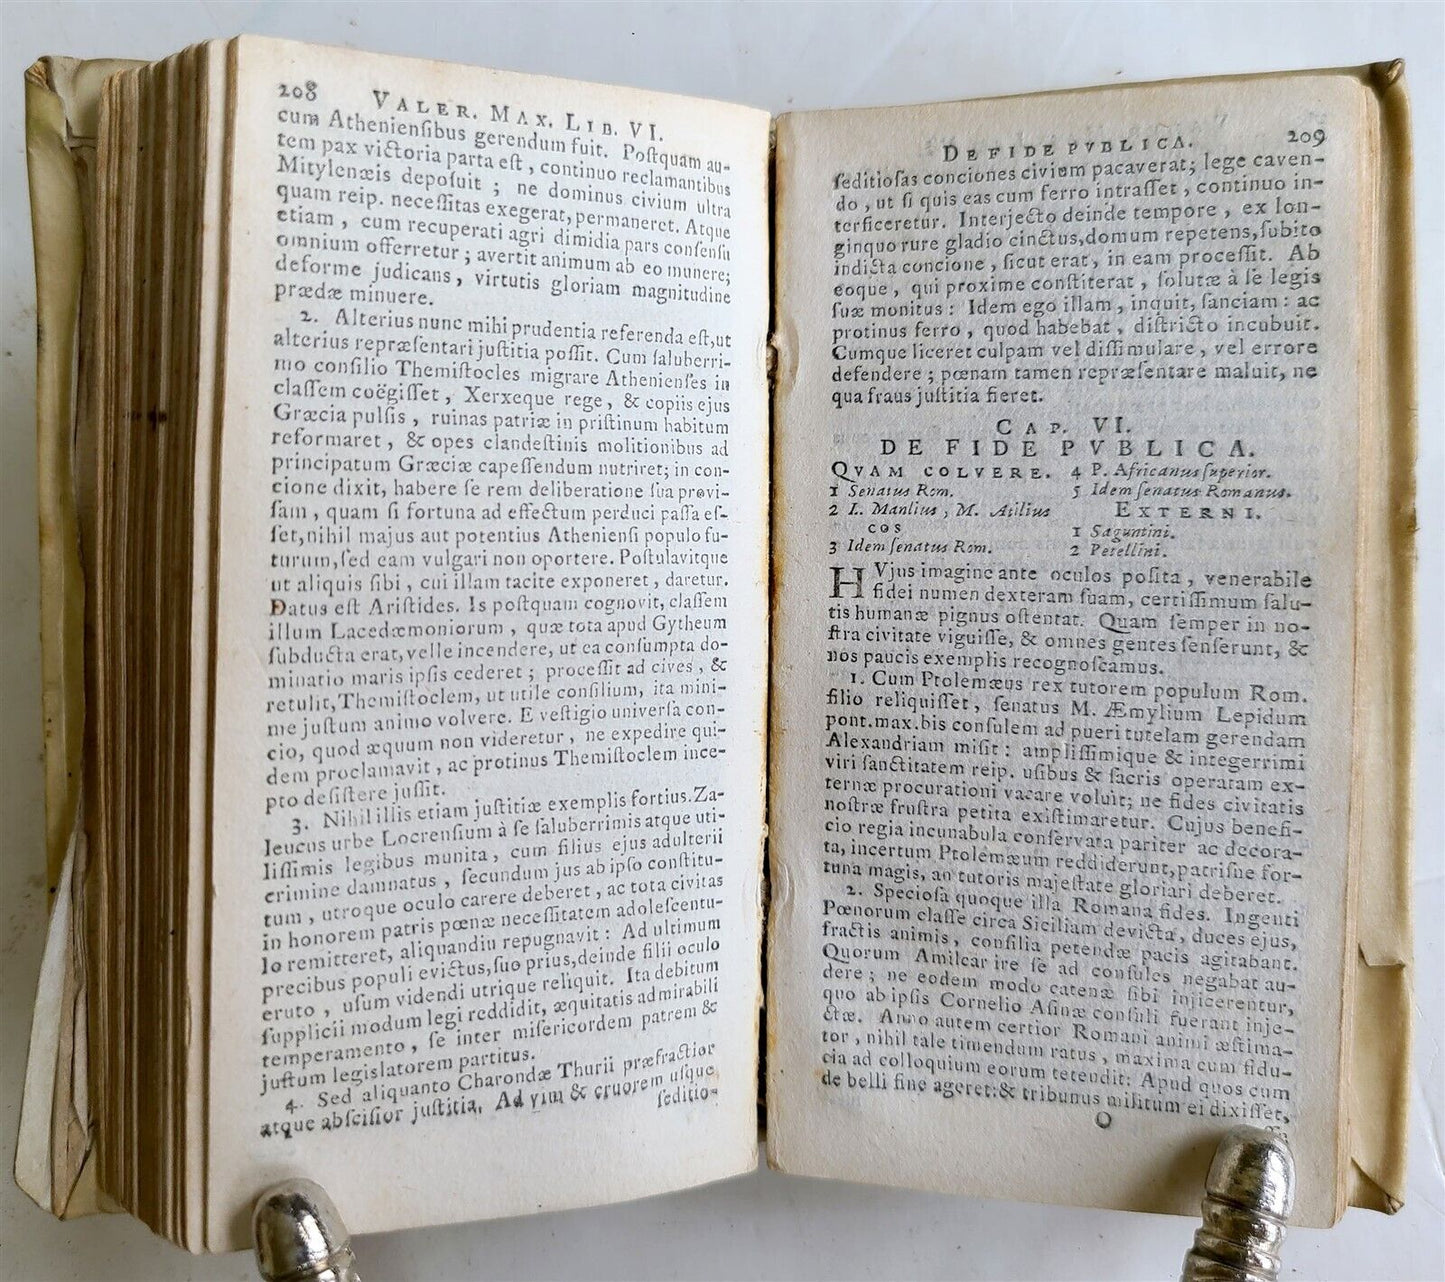 208 VALER. MAX. LIB. VI.
cum Athenienſibus gerendum fuit. Poſtquam au-
tem pax victoria parta eſt, continuo reclamantibus
Mitylenæis depoſuit; ne dominus civium ultra
quam reip. neceſſitas exegerat, permaneret. Atque
etiam, cum recuperati agri dimidia pars conſenſu
omnium offerretur; avertit animum ab eo munere;
deforme judicans, virtutis gloriam magnitudine
prædæ minuere.
2. Alterius nunc mihi prudentia referenda eſt, ut
alterius repræſentari juſtitia poſſit. Cum ſaluberri-
mo conſilio Themiſtocles migrare Athenienſes in
claſſem coëgiſſet, Xerxeque rege, & copiis ejus
Græcia pulſis, ruinas patriæ in priſtinum habitum
reformaret, & opes clandeſtinis molitionibus ad
principatum Græciæ capeſſendum nutriret; in con-
cione dixit, habere ſe rem deliberatione ſua proviſ-
ſam, quam ſi fortuna ad effectum perduci paſſa eſ-
ſet, nihil majus aut potentius Athenienſi populo fu-
turum, ſed eam vulgari non oportere. Poſtulavitque
ut aliquis ſibi, cui illam tacite exponeret, daretur.
Datus eſt Ariſtides. Is poſtquam cognovit, claſſem
illum Lacedæmoniorum, quæ tota apud Gytheum
ſubducta erat, velle incendere, ut ea conſumpta do-
minatio maris ipſis cederet; proceſſit ad cives, &
retulit, Themiſtoclem, ut utile conſilium, ita mini-
me juſtum animo volvere. E veſtigio univerſa con-
cio, quod æquum non videretur, ne expedire qui-
dem proclamavit, ac protinus Themiſtoclem ince-
pto deſiſtere juſſit.
3. Nihil illis etiam juſtitiæ exemplis fortius. Za-
leucus urbe Locrenſium à ſe ſaluberrimis atque uti-
liſſimis legibus munita, cum filius ejus adulterii
crimine damnatus, ſecundum jus ab ipſo conſtitu-
tum, utroque oculo carere deberet, ac tota civitas
in honorem patris pœnæ neceſſitatem adoleſcentu-
lo remitteret, aliquandiu repugnavit: Ad ultimum
precibus populi evictus, ſuo prius, deinde filii oculo
eruto, uſum videndi utrique reliquit. Ita debitum
ſupplicii modum legi reddidit, æquitatis admirabili
temperamento, ſe inter miſericordem patrem &
juſtum legislatorem partitus.
4. Sed aliquanto Charondæ Thurii præfractior
atque abſciſior juſtitia. Ad vim & cruorem uſque
ſeditio-
DE FIDE PVBLICA. 209
ſeditioſas conciones civium pacaverat; lege caven-
do, ut ſi quis eas cum ferro intraſſet, continuo in-
terficeretur. Interjecto deinde tempore, ex lon-
ginquo rure gladio cinctus, domum repetens, ſubito
indicta concione, ſicut erat, in eam proceſſit. Ab
eoque, qui proxime conſtiterat, ſolutæ à ſe legis
ſuæ monitus: Idem ego illam, inquit, ſanciam: ac
protinus ferro, quod habebat, diſtricto incubuit.
Cumque liceret culpam vel diſſimulare, vel errore
defendere; pœnam tamen repræſentare maluit, ne
qua fraus juſtitia fieret.
CAP. VI.
DE FIDE PVBLICA.
QVAM COLVERE.
1 Senatus Rom.
2 L. Manlius, M. Atilius
COS
3 Idem ſenatus Rom.
4 P. Africanus ſuperior.
5 Idem ſenatus Romanus.
EXTERNI.
1 Saguntini.
2 Petellini.
HVjus imagine ante oculos poſita, venerabile
fidei numen dexteram ſuam, certiſſimum ſalu-
tis humanæ pignus oſtentat. Quam ſemper in no-
ſtra civitate viguiſſe, & omnes gentes ſenſerunt, &
nos paucis exemplis recognoſcamus.
1. Cum Ptolemæus rex tutorem populum Rom.
filio reliquiſſet, ſenatus M. Æmylium Lepidum
pont. max. bis conſulem ad pueri tutelam gerendam
Alexandriam miſit: ampliſſimique & integerrimi
viri ſanctitatem reip. uſibus & ſacris operatam ex-
ternæ procurationi vacare voluit; ne fides civitatis
noſtræ fruſtra petita exiſtimaretur. Cujus benefi-
cio regia incunabula conſervata pariter ac decora-
ta, incertum Ptolemæum reddiderunt, patriſne for-
tuna magis, an tutoris majeſtate gloriari deberet.
2. Specioſa quoque illa Romana fides. Ingenti
Pœnorum claſſe circa Siciliam devicta, duces ejus,
fractis animis, conſilia petendæ pacis agitabant.
Quorum Amilcar ire ſe ad conſules negabat au-
dere; ne eodem modo catenæ ſibi injicerentur,
quo ab ipſis Cornelio Aſinæ conſuli fuerant inje-
ctæ. Anno autem certior Romani animi æſtima-
tor, nihil tale timendum ratus, maxima cum fidu-
cia ad colloquium eorum tetendit: Apud quos cum
de belli fine ageret: & tribunus militum ei dixiſſet,
O